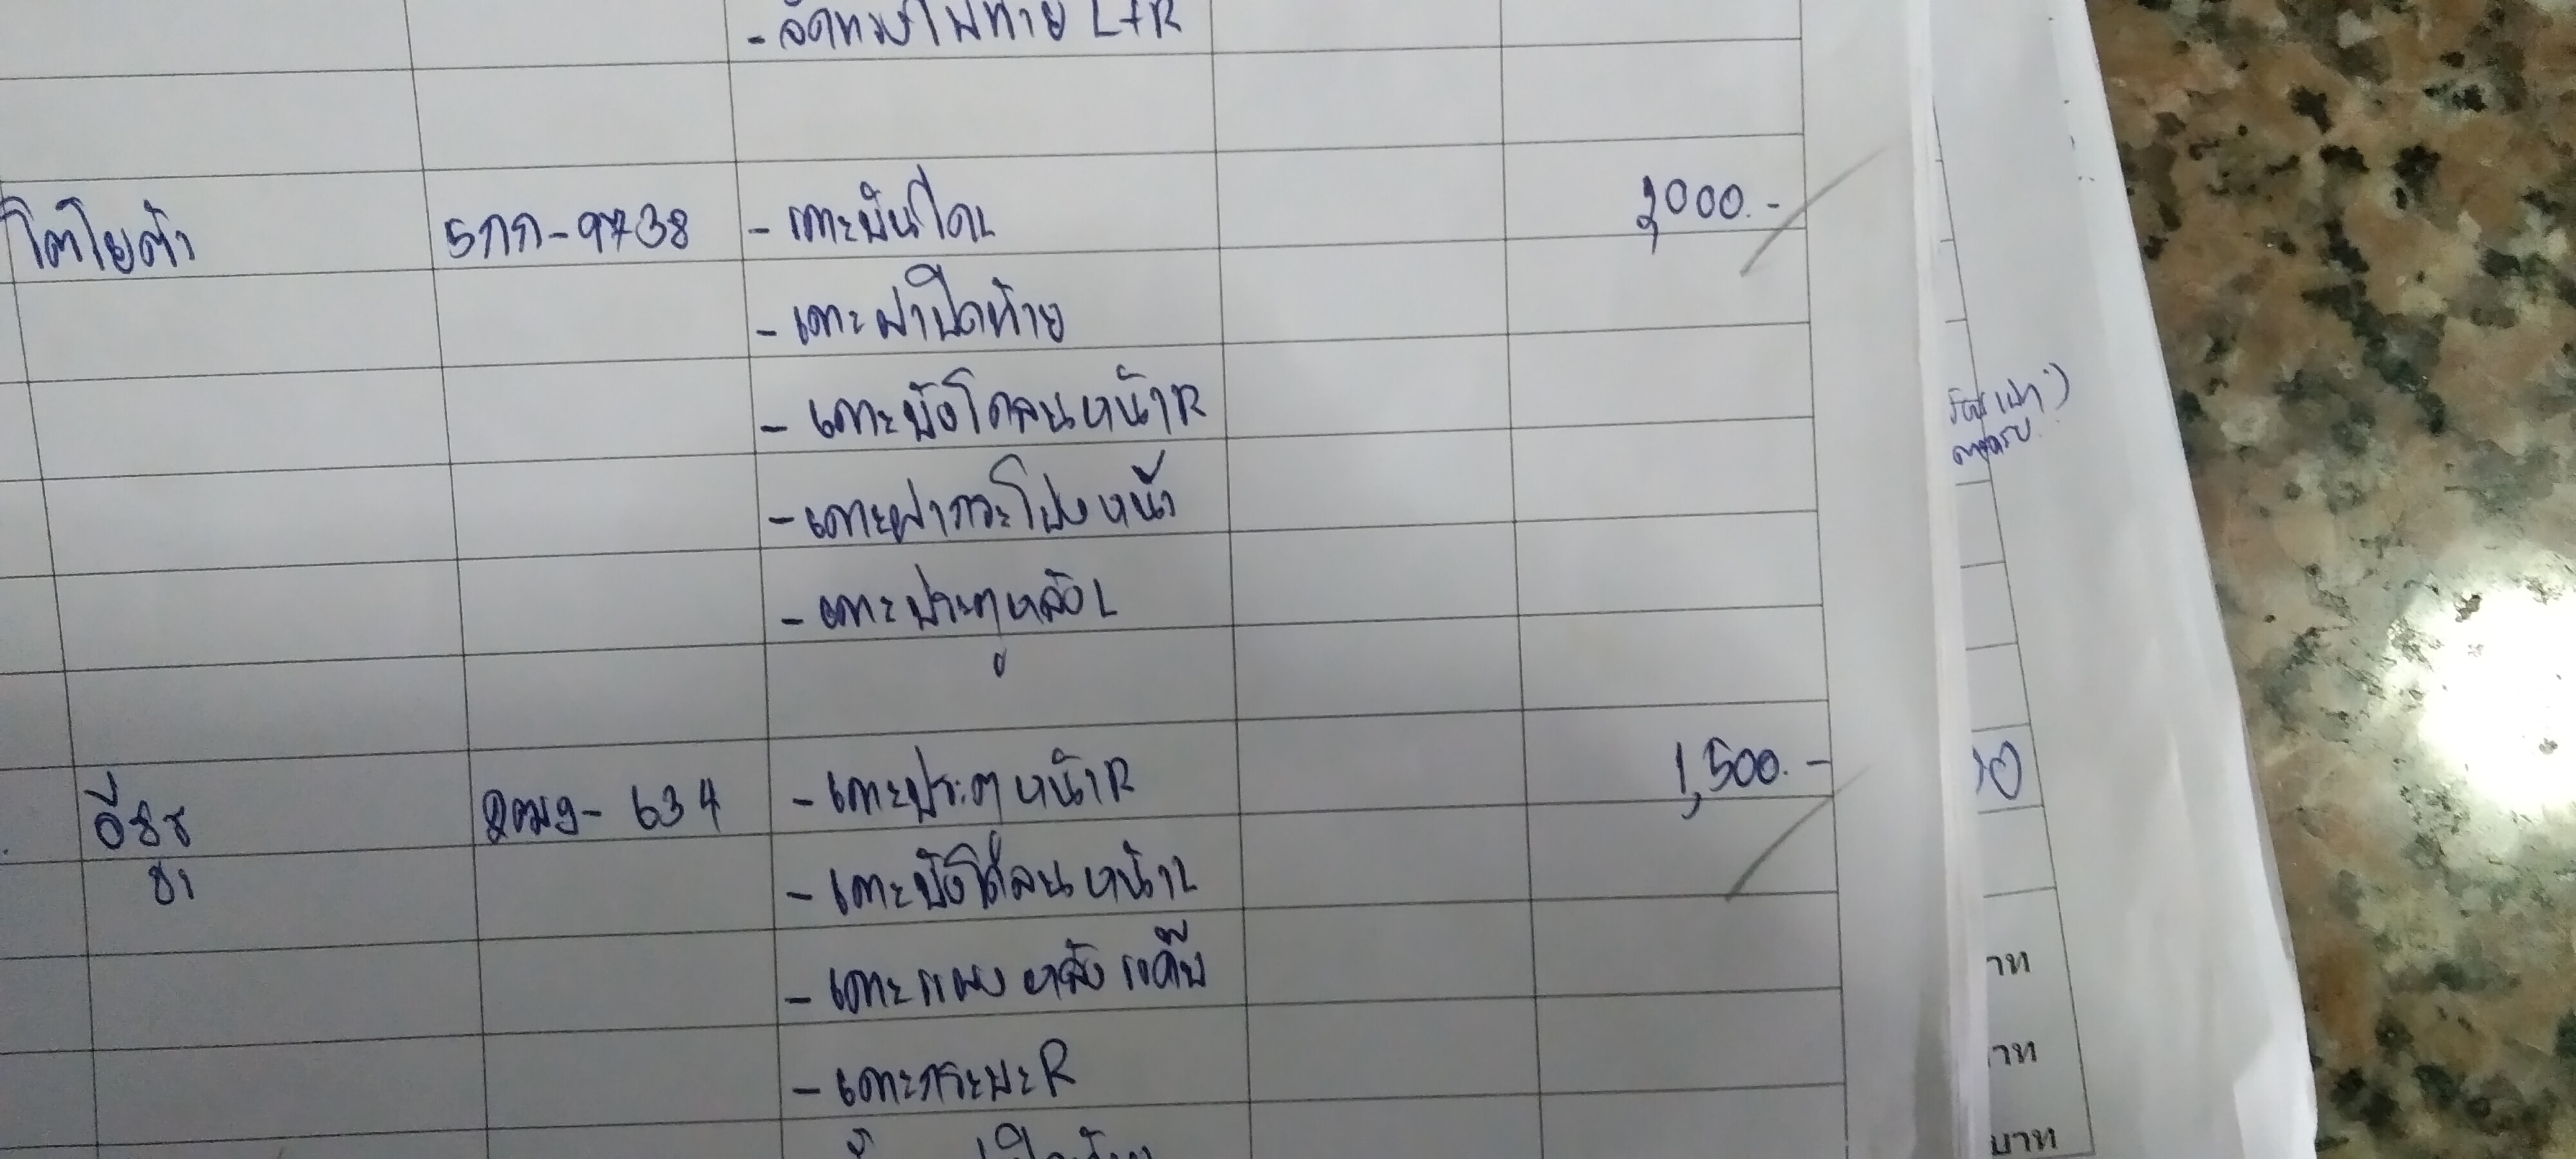 - จัดทรงไฟท้าย L+R
โตโยต้า 5กก-9738 - เคาะบันได L 2,000.-
- เคาะฝาปิดท้าย
- เคาะบังโคลนหน้า R
- เคาะฝากระโปรงหน้า
- เคาะประตูหลัง L
อีซูซุ 634 - เคาะประตูหน้า R 1,500.-
- เคาะบังโคลนหน้า L
- เคาะแผงหลังแค็บ
- เคาะกระบะ R
าท
าท
บาท